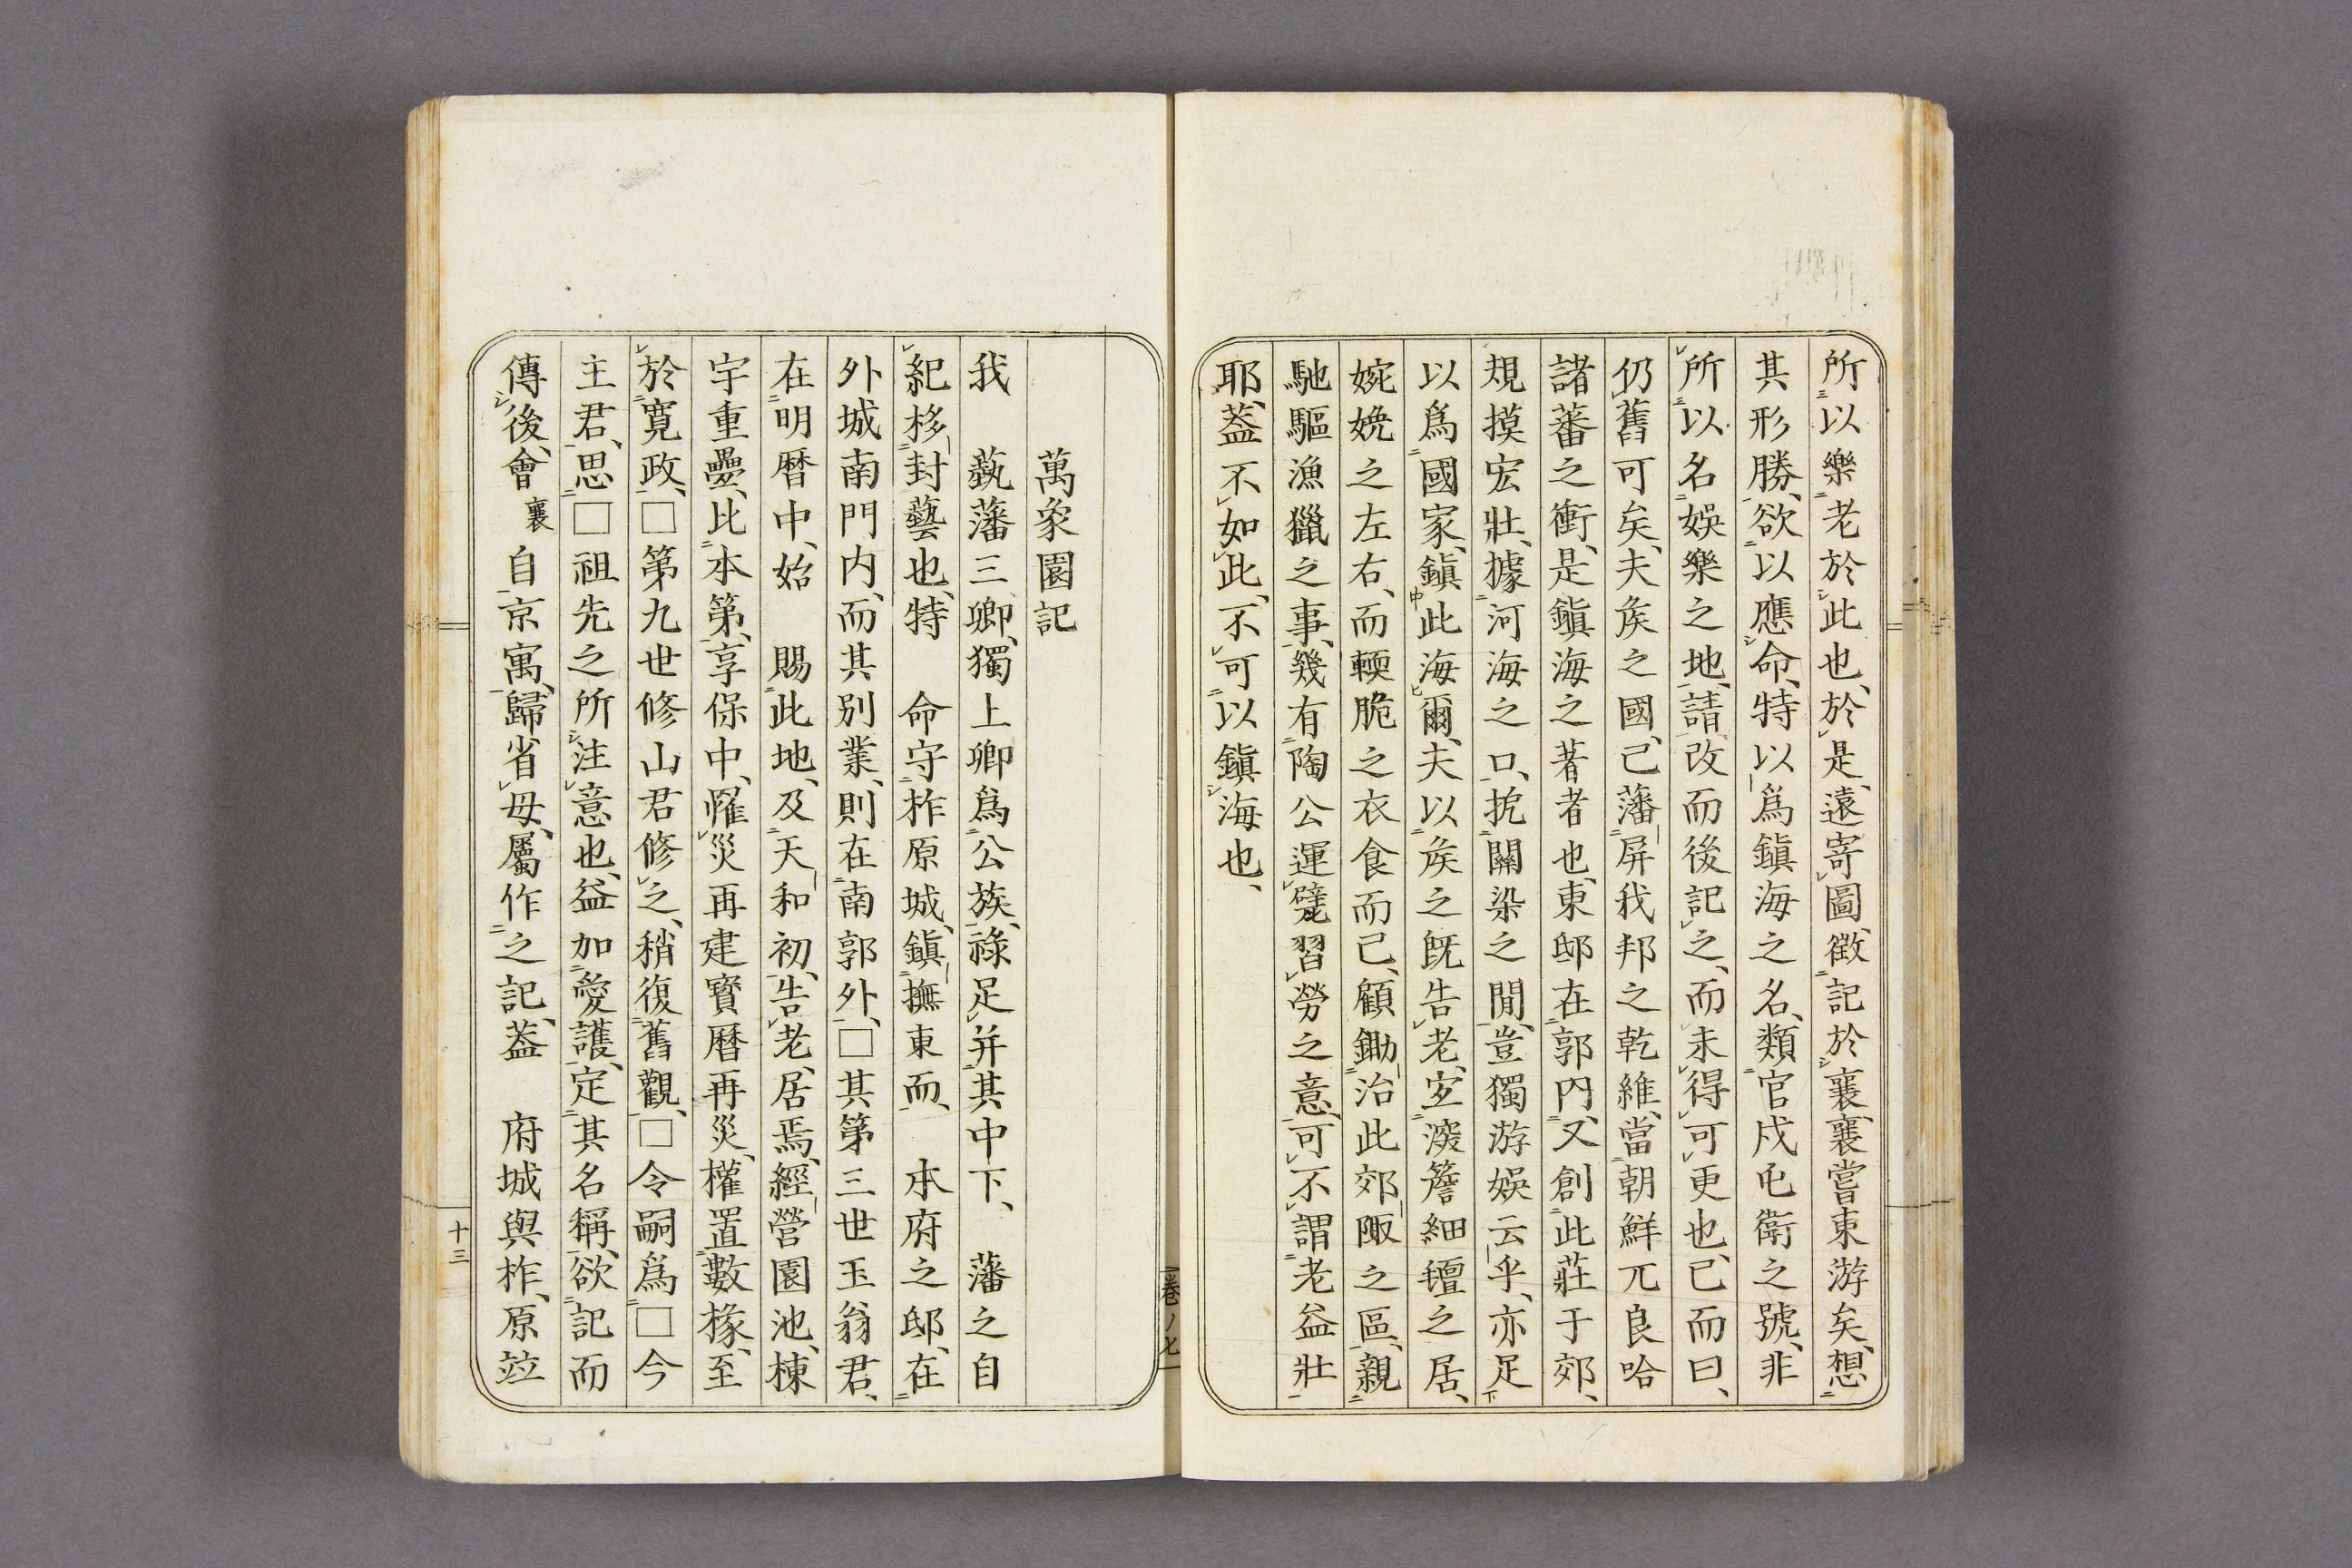 所以樂老於此也、於是、遠寄圖、徵記於襄、襄嘗東游矣、想
其形勝、欲以應命、特以爲鎭海之名、類官戍屯衛之號、非
所以名娯樂之地、請改而後記之、而未得可更也、已而曰、
仍舊可矣、夫矦之國、已藩屏我邦之乾維、當朝鮮兀良哈
諸蕃之衝、是鎭海之著者也、東邸在郭内、又創此莊于郊、
規摸宏壯、據河海之口、扼關梁之間、豈獨游娯云乎、亦足
以爲國家、鎭此海爾、夫以矦之既告老、宜深簷細氈之居、
婉娩之左右、而輭脆之衣食而已、顧鋤治此郊陬之區、親
馳驅漁獵之事、幾有陶公運甓習勞之意、可不謂老益壯
耶、葢不如此、不可以鎭海也、
萬象園記
我　藝藩三卿、獨上卿爲公族、祿足并其中下、　藩之自
紀移封藝也、特　命守柞原城、鎭撫東而、　本府之邸、在
外城南門内、而其別業、則在南郭外、□其第三世玉翁君、
在明暦中、始　賜此地、及天和初、告老、居焉、經營園池、棟
宇重疊、比本第、享保中、罹災再建寳暦再災、權置數椽、至
於寛政、□第九世修山君修之、稍復舊觀、□令嗣爲□今
主君、思□祖先之所注意也、益加愛護、定其名稱、欲記而
傳後、會襄自京寓、歸省母、屬作之記、葢　府城與柞、原竝
卷ノ七
十三